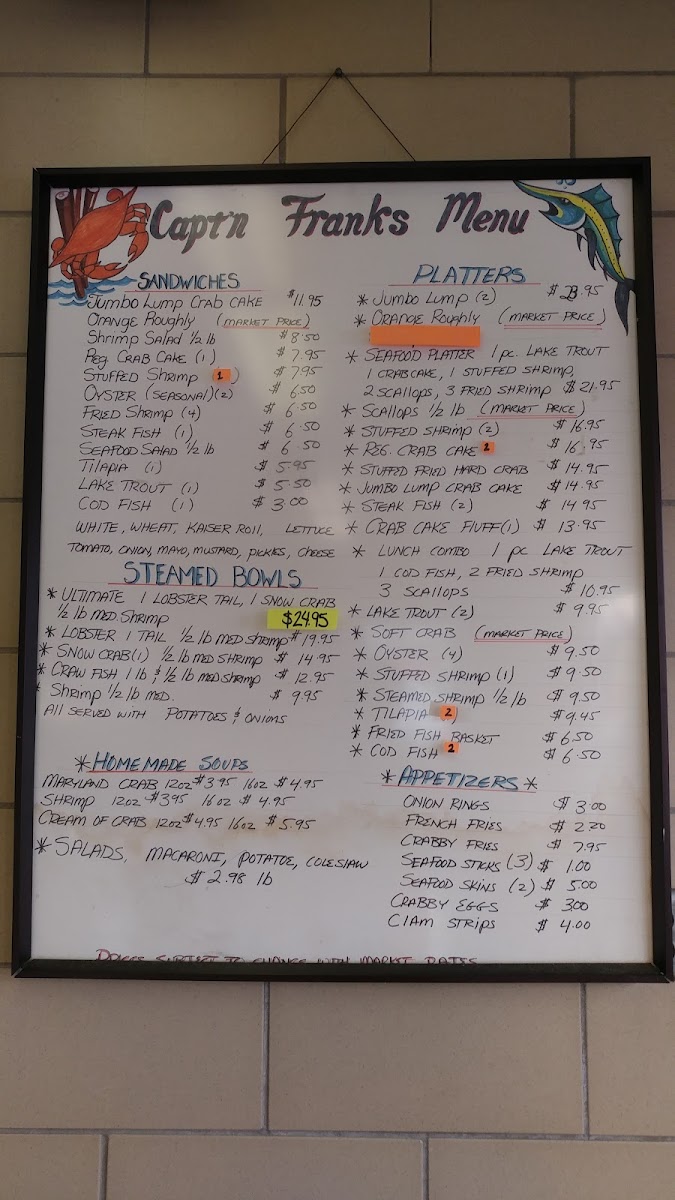 Capt'n Franks Menu
SANDWICHES
Jumbo Lump Crab Cake $11.95
Orange Roughly (Market Price)
Shrimp Salad 1/2 lb $8.50
Reg Crab Cake (1) $7.95
Stuffed Shrimp 1) $7.95
Oyster (Seasonal)(2) $6.50
Fried Shrimp (4) $6.50
Steak Fish (1) $6.50
Seafood Salad 1/2 lb $6.50
Tilapia (1) $5.95
Lake Trout (1) $5.50
Cod Fish (1) $3.00
White, Wheat, Kaiser Roll, Lettuce
Tomato, Onion, Mayo, Mustard, Pickles, Cheese
STEAMED BOWLS
* Ultimate 1 Lobster Tail, 1 Snow Crab
1/2 lb Med. Shrimp $24.95
* Lobster 1 Tail 1/2 lb Med Shrimp $19.95
* Snow Crab(1) 1/2 lb Med Shrimp $14.95
* Craw Fish 1 lb & 1/2 lb Med Shrimp $12.95
* Shrimp 1/2 lb Med. $9.95
All Served With Potatoes & Onions
*HOMEMADE SOUPS
Maryland Crab 12oz $3.95 16oz $4.95
Shrimp 12oz $3.95 16oz $4.95
Cream of Crab 12oz $4.95 16oz $5.95
*Salads, Macaroni, Potatoe, Coleslaw
$2.98 lb
PLATTERS
* Jumbo Lump (2) .95
* Orange Roughly (Market Price)
* Seafood Platter 1 pc. Lake Trout
1 Crabcake, 1 Stuffed Shrimp,
2 Scallops, 3 Fried Shrimp $21.95
* Scallops 1/2 lb (Market Price)
* Stuffed Shrimp (2) $16.95
* Reg. Crab Cake 2 $16.95
* Stuffed Fried Hard Crab $14.95
* Jumbo Lump Crab Cake $14.95
* Steak Fish (2) $14.95
* Crab Cake Fluff(1) $13.95
* Lunch Combo 1 pc Lake Trout
1 Cod Fish, 2 Fried Shrimp
3 Scallops $10.95
* Lake Trout (2) $9.95
* Soft Crab (Market Price)
* Oyster (4) $9.50
* Stuffed Shrimp (1) $9.50
* Steamed Shrimp 1/2 lb $9.50
* Tilapia 2 $9.45
* Fried Fish Basket $6.50
* Cod Fish 2 $6.50
*APPETIZERS*
Onion Rings $3.00
French Fries $2.20
Crabby Fries $7.95
Seafood Sticks (3) $1.00
Seafood Skins (2) $5.00
Crabby Eggs $3.00
Clam Strips $4.00
Prices Subject to Change With Market Rates